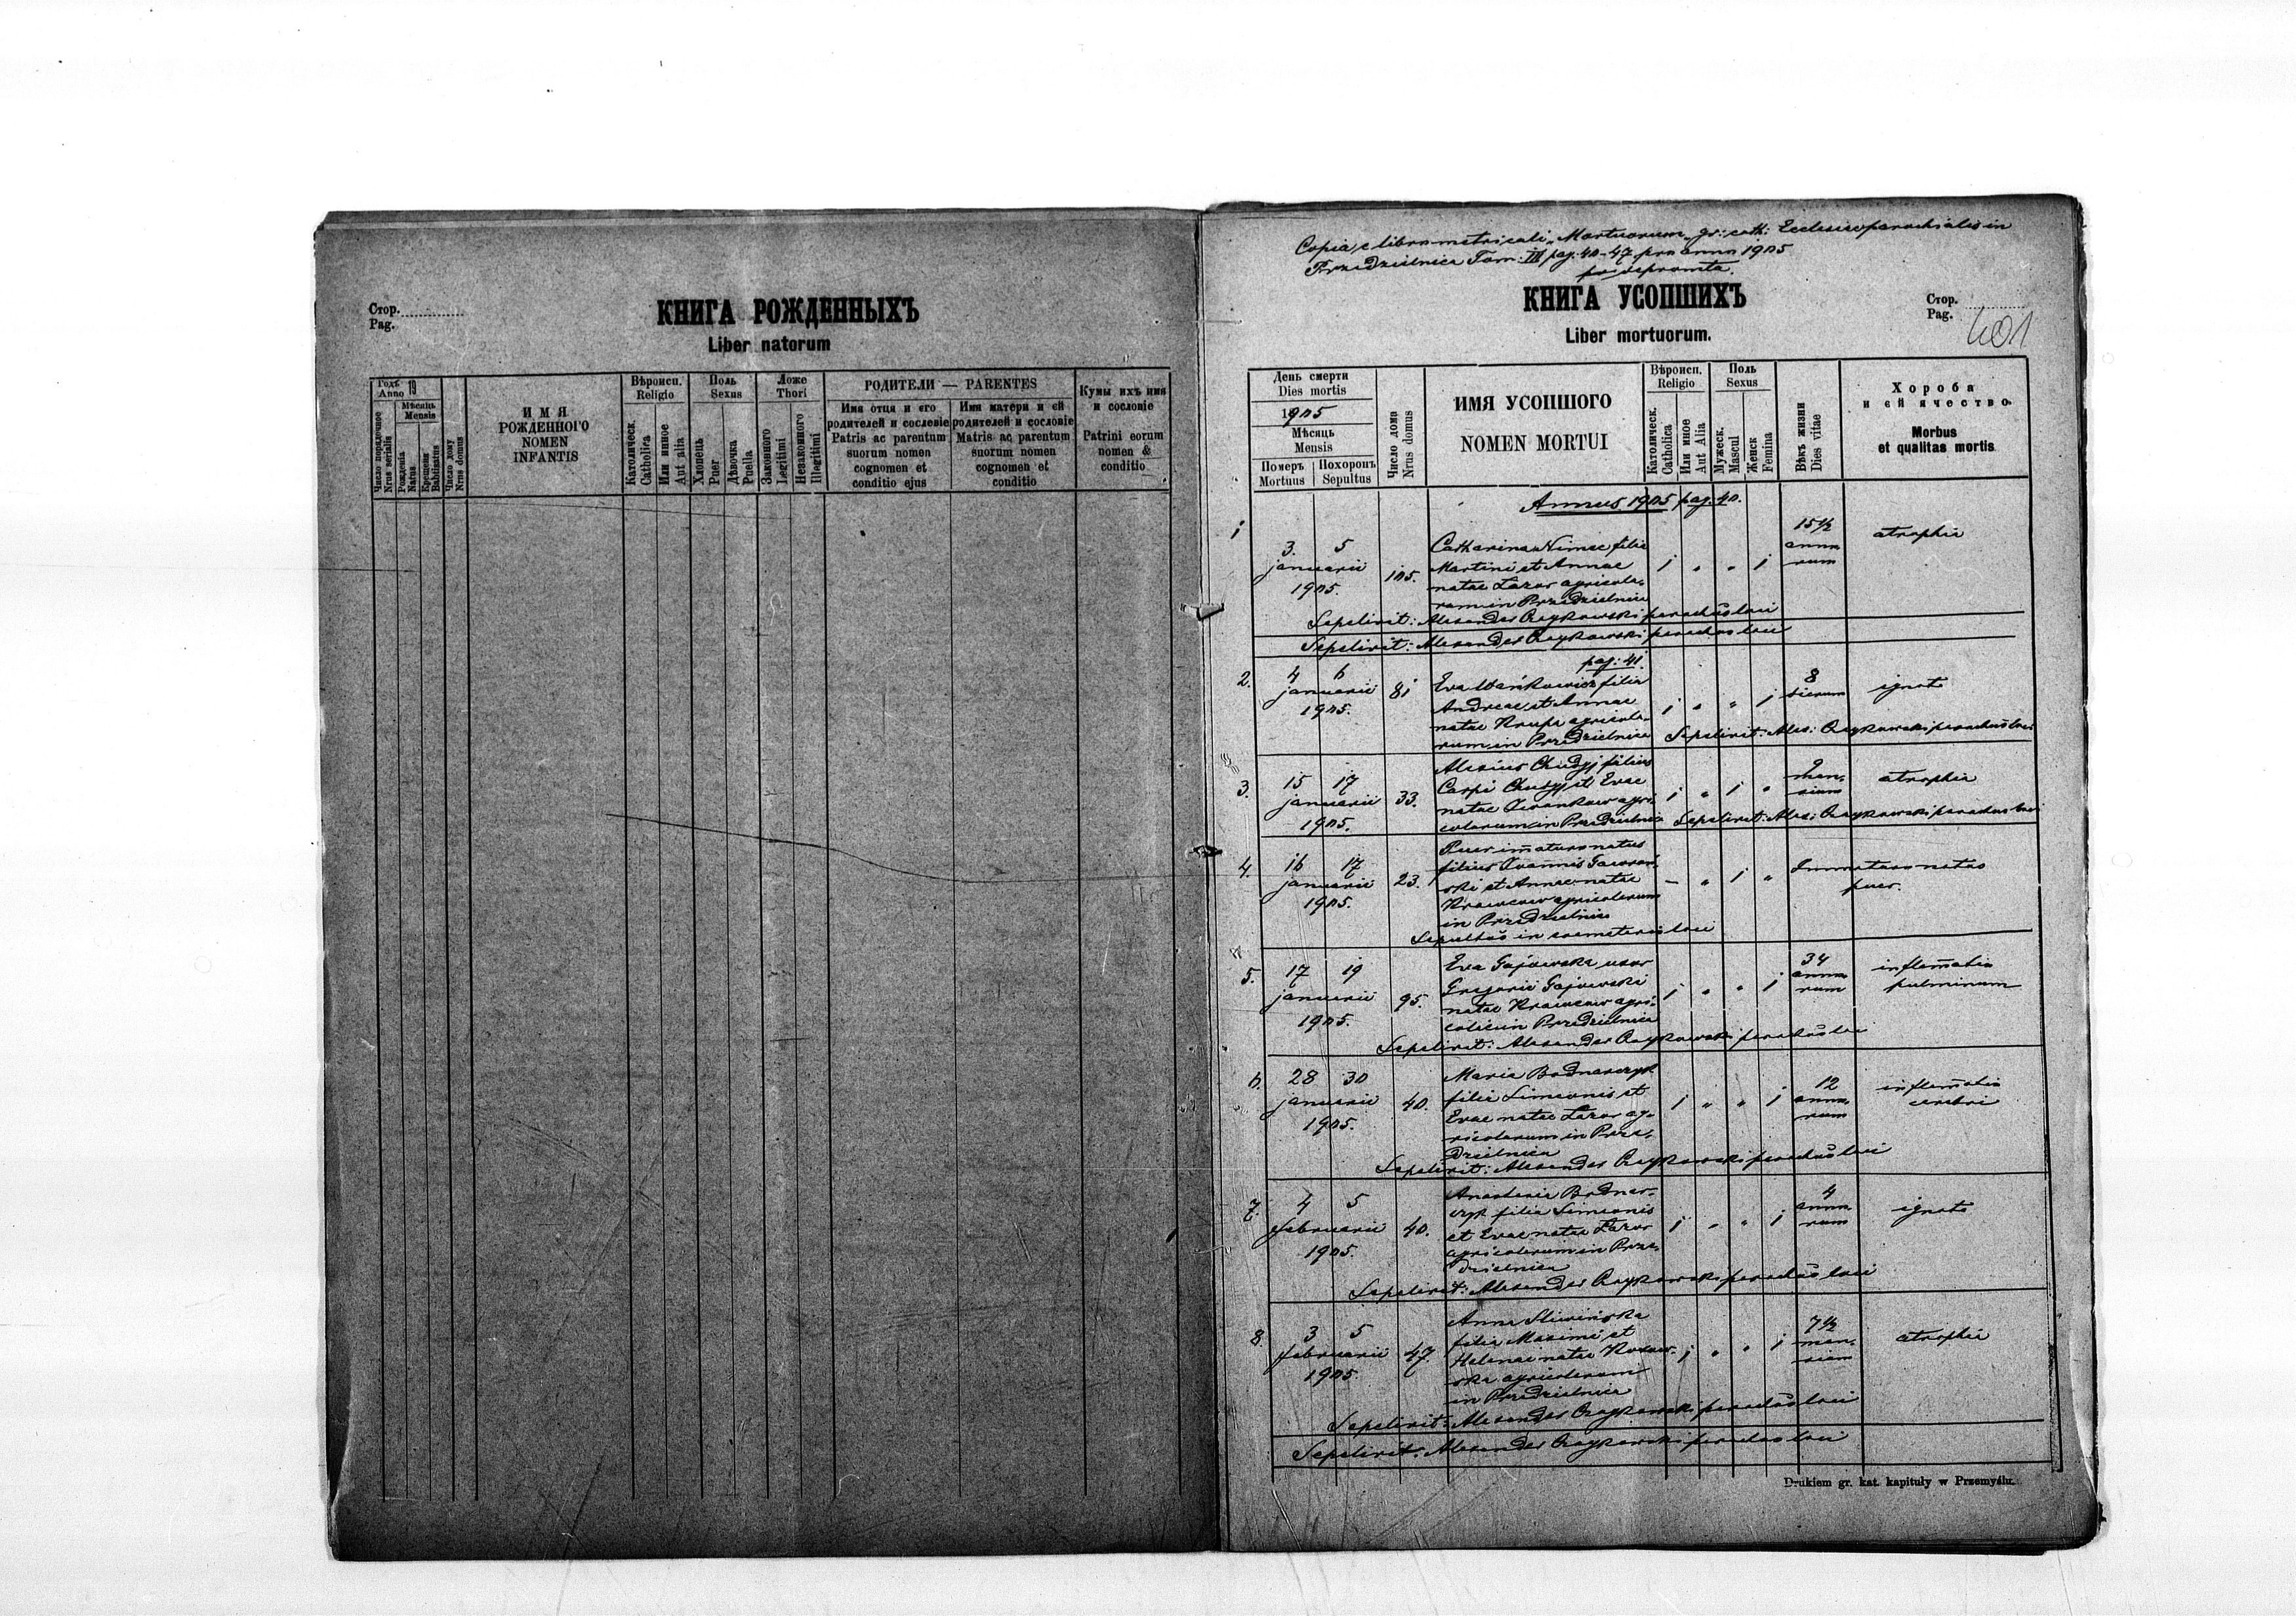 Стор.
Pag.
КНИГА РОЖДЕННЫХЪ
Liber natorum
Годъ 19
Anno
Мѣсяць
Mensis
Число порядочное
Nrus serialis
Рожденія
Natus
Крещенія
Babtisatus
Число дому
Nrus domus
ИМЯ
РОЖДЕННОГО
NOMEN
INFANTIS
Вѣроисп.
Religio
Католическ.
Catholica
Или иное
Aut alia
Поль
Sexus
Хлопець
Puer
Дѣвочка
Puella
Ложе
Thori
Законного
Legitimi
Незаконного
Illegitimi
РОДИТЕЛИ — PARENTES
Имя отца и его
родителей и сословіе
Patris ac parentum
suorum nomen
cognomen et
conditio ejus
Имя матери и ей
родителей и сословіе
Matris ac parentum
suorum nomen
cognomen et
conditio
Кумы ихъ имя
и сословіе
Patrini eorum
nomen &
conditio
Copia e libro metricali "Mortuorum" gr: cath: Ecclesiae parochialis in
Przedzielnica Tom: III pag. 40-47 pro anno 1905
depromta.
КНИГА УСОПШИХЪ
Liber mortuorum.
Стор.
Pag.
401
День смерти
Dies mortis
1905
Мѣсяць
Mensis
Померъ
Mortuus
Похоронъ
Sepultus
Число дома
Nrus domus
ИМЯ УСОПШОГО
NOMEN MORTUI
Вѣроисп.
Religio
Католическ.
Catholica
Или иное
Aut Alia
Поль
Sexus
Мужеск.
Mascul
Женск
Femina
Вѣкъ жизни
Dies vitae
Хороба
и ей ячество.
Morbus
et qualitas mortis
Annus 1905 pag. 40.
1
3. 5
januarii
1905.
105.
Catharina Nimec filia
Martini et Annae
natae Lazor agricola-
rum in Przedzielnica
1 " " 1
15 1/2
anno
rum
atrophia
Sepelivit: Alexander Czajkowski parochus loci
Sepelivit: Alexander Czajkowski parochus loci
pag: 41.
2.
4 6
januarii
1905.
81
Eva Wańkowicz filia
Andreae et Annae
natae Krupa agricola-
rum in Przedzielnica
1 " " 1
8
dierum
ignota
Sepelivit: Alex: Czajkowski parochus loci
3.
15 17
januarii
1905.
33.
Alexius Chudyj filius
Carpi Chudyj et Evae
natae Iwankow agri-
colarum in Przedzielnica
1 " 1 "
9
men-
sium
atrophia
Sepelivit: Alex: Czajkowski parochus loci
4.
16 17
januarii
1905.
23.
Puer immature natus
filius Ioannis
et Annae natae
Krawcow agricolarum
in Przedzielnica
– " 1 "
Immature natus
puer.
Sepultus in coemeterio loci
5.
17 19
januarii
1905.
95.
Eva Gajewska uxor
Gregorii Gajewski
natae Krawcow agri-
colae in Przedzielnica
1 " " 1
34
anno
rum
inflammatio
pulminum
Sepelivit: Alexander Czajkowski parochus loci
6.
28 30
januarii
1905.
40.
Maria Bodnarczyk
filia Simeonis et
Evae natae Lazor ag-
ricolarum in Prze-
dzielnica
1 " " 1
12
anno
rum
inflammatio
cerebri
Sepelivit: Alexander Czajkowski parochus loci
7.
4 5
februarii
1905.
40.
Anastasia Bodnar-
czyk filia Simeonis
et Evae natae Lazor
agricolarum in Prze-
dzielnica
1 " " 1
4
anno
rum
ignota
Sepelivit: Alexander Czajkowski parochus loci
8.
3 5
februarii
1905.
47.
Anna Sliwińska
filia Maximi et
Helenae natae
agricolarum
in Przedzielnica
1 " " 1
7 1/2
men-
sium
atrophia
Sepelivit: Alexander Czajkowski parochus loci
Sepelivit: Alexander Czajkowski parochus loci
Drukiem gr. kat. kapituły w Przemyślu.